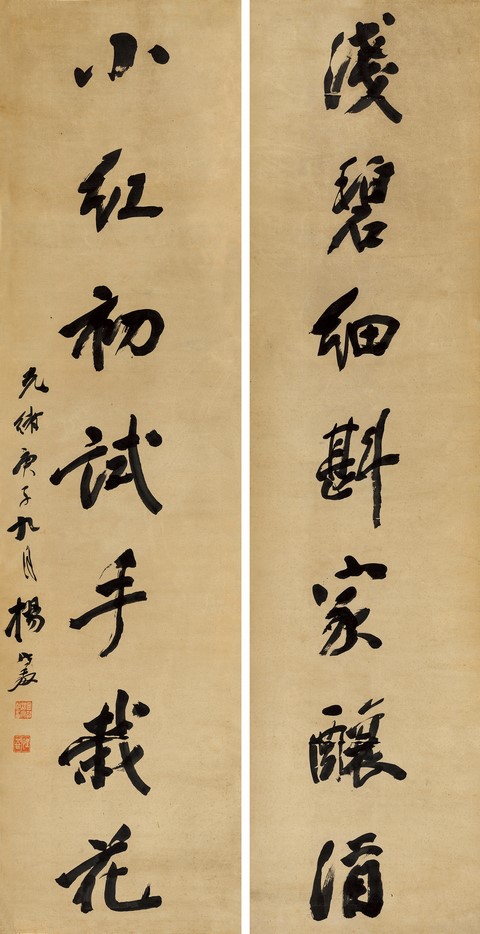 淺碧細斟家釀酒
小紅初試手栽花
光緒庚子九月楊守敬